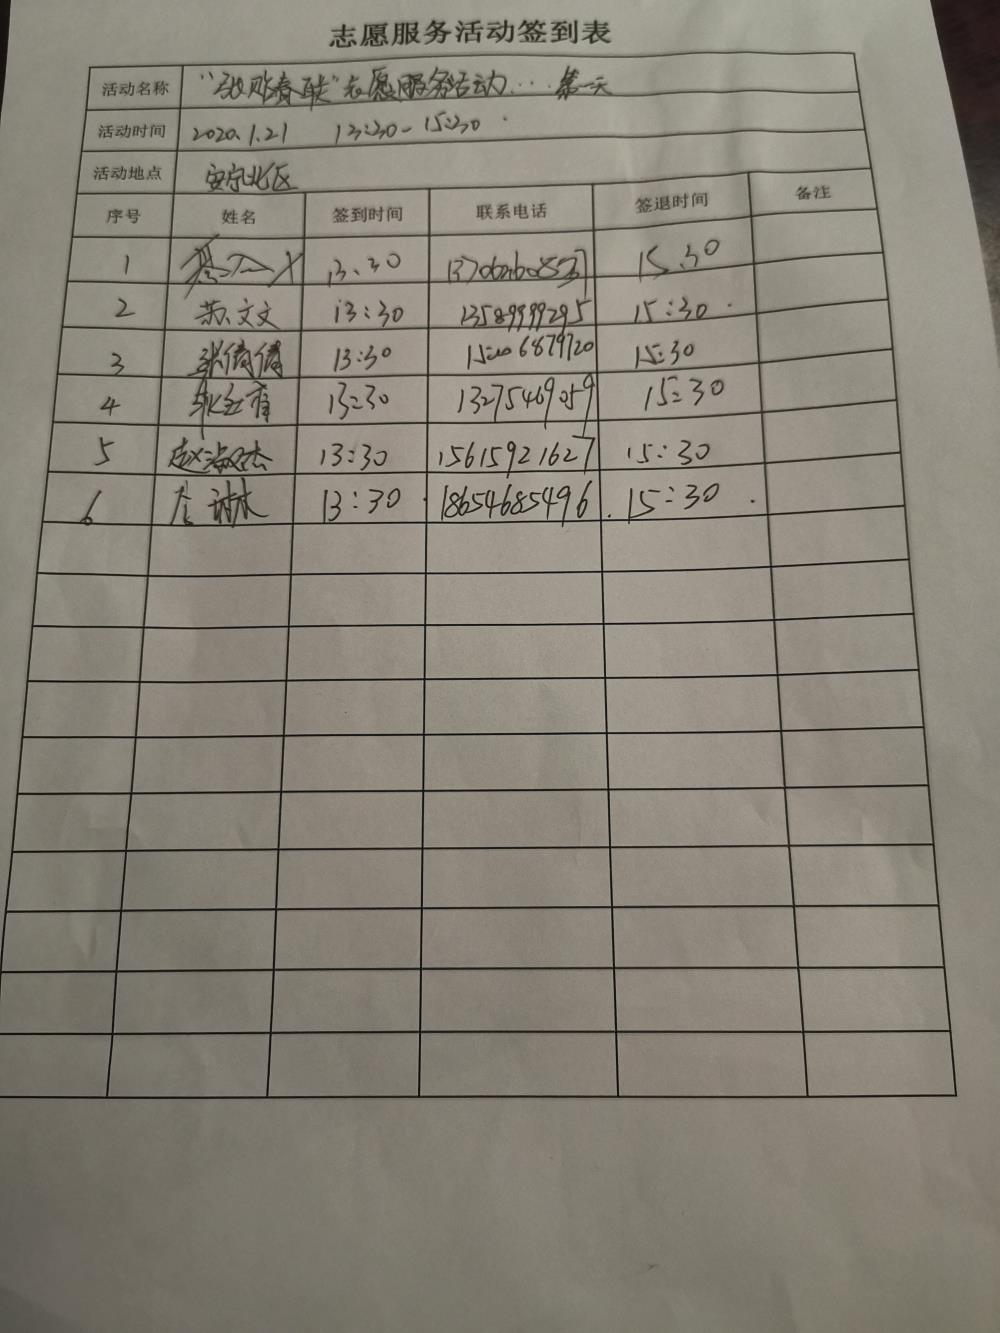 志愿服务活动签到表
活动名称 "张贴春联"志愿服务活动……第一天
活动时间 2020.1.21 13:30-15:30
活动地点 安宁北区
序号 姓名 签到时间 联系电话 签退时间 备注
1 13:30 15:30
2 苏文文 13:30 13589999295 15:30
3 张倩倩 13:30 15006879720 15:30
4 13:30 13275469059 15:30
5 赵淑杰 13:30 15615921627 15:30
6 13:30 18654685496 15:30